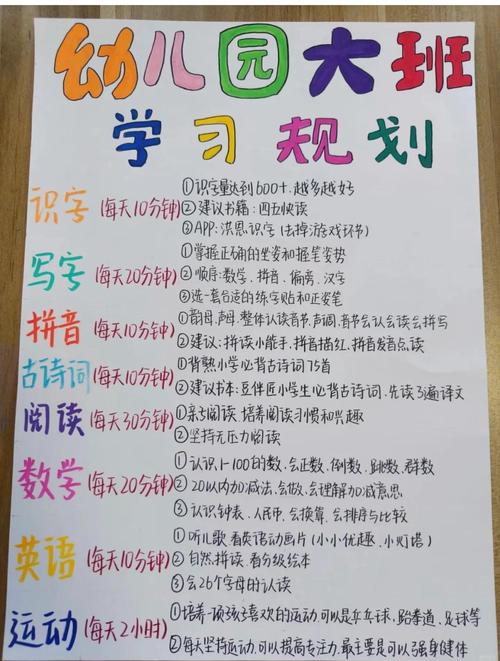 幼儿园大班
学习规划
识字(每天10分钟)
①识字量达到600+.越多越好
②建议书籍:四五快读
③APP:洪恩识字(去掉游戏环节)
写字(每天20分钟)
①掌握正确的坐姿和握笔姿势
②顺序:数学、拼音、偏旁、汉字
③选一套合适的练字贴和正姿笔
拼音(每天10分钟)
①韵母.声母.整体认读音节.声调.音节会认会读会拼写
②建议:拼读小能手.拼音描红.拼音发音点读
古诗词(每天10分钟)
①背熟小学必背古诗词75首
②建议书本:豆伴匠小学生必背古诗词.先读3遍译文
阅读(每天30分钟)
①亲子阅读 培养阅读习惯和兴趣
②坚持无压力阅读
数学(每天20分钟)
①认识1-100的数.会正数.倒数.跳数.群数
②20以内加减法,会做,会理解加减意思
③认识钟表.人民币.会换算.会排序与比较
英语(每天10分钟)
①听儿歌.看英语动画片(小小优趣、小灯塔)
②自然拼读.看分级绘本
③会26个字母的认读
运动(每天2小时)
①培养一项孩子喜欢的运动.可以是乒乓球,跆拳道、足球等
②每天坚持运动.可以提高专注力.最主要是可以强身健体